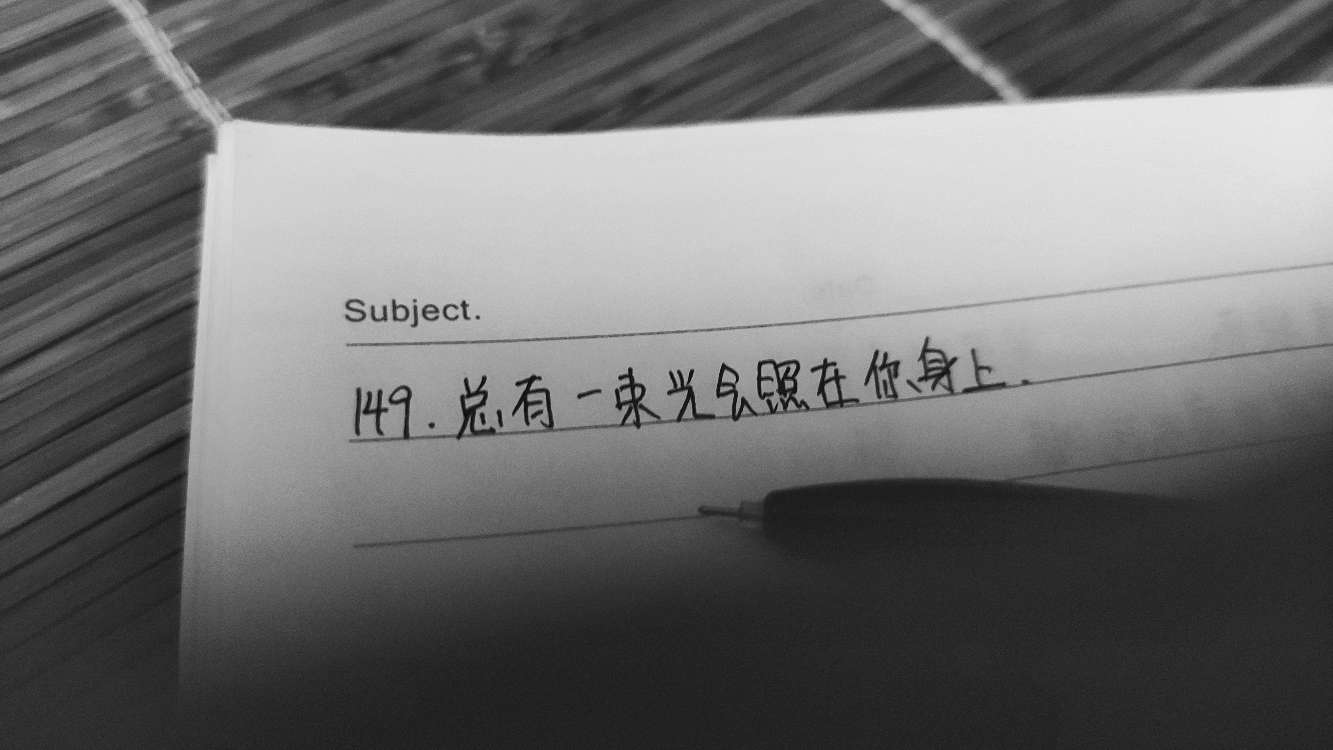 Subject.
149. 总有一束光会照在你身上.